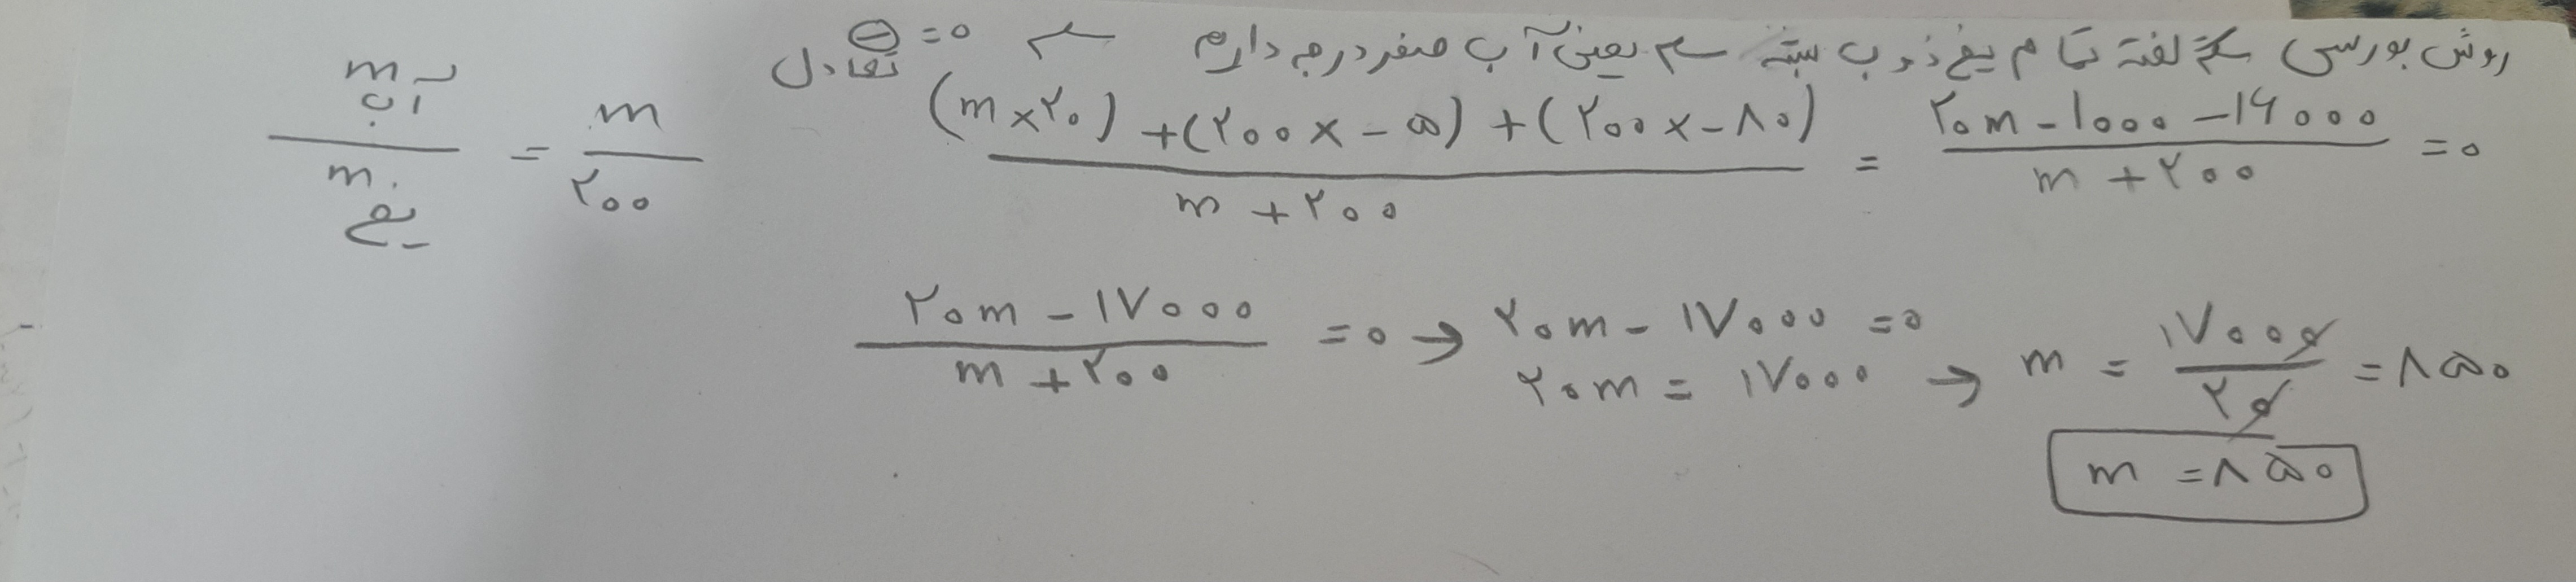 روش بورسی گفته تمام یخ ذوب شده یعنی آب صفر درجه داریم θ تعادل = ۰
m آب / m یخ = m / ۲۰۰
(m × ۲۰) + (۲۰۰ × -۵) + (۲۰۰ × -۸۰) / m + ۲۰۰ = ۲۰m - ۱۰۰۰ - ۱۶۰۰۰ / m + ۲۰۰ = ۰
۲۰m - ۱۷۰۰۰ / m + ۲۰۰ = ۰ → ۲۰m - ۱۷۰۰۰ = ۰
۲۰m = ۱۷۰۰۰ → m = ۱۷۰۰۰ / ۲۰ = ۸۵۰
m = ۸۵۰